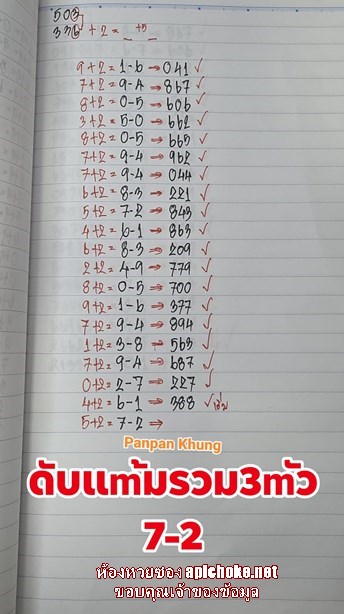 503
336 + 2 = _ +5 _
9+2 = 1-6 → 041 ✓
7+2 = 9-4 → 867 ✓
8+2 = 0-5 → 606 ✓
3+2 = 5-0 → 662 ✓
8+2 = 0-5 → 665 ✓
7+2 = 9-4 → 962 ✓
7+2 = 9-4 → 044 ✓
6+2 = 8-3 → 221 ✓
5+2 = 7-2 → 843 ✓
4+2 = 6-1 → 863 ✓
6+2 = 8-3 → 209 ✓
2+2 = 4-9 → 779 ✓
8+2 = 0-5 → 700 ✓
9+2 = 1-6 → 377 ✓
7+2 = 9-4 → 894 ✓
1+2 = 3-8 → 563 ✓
7+2 = 9-4 → 687 ✓
0+2 = 2-7 → 227 ✓
4+2 = 6-1 → 388 ✓
5+2 = 7-2 →
Panpan Khung
ดับแต้มรวม3ตัว
7-2
ห้องหวยซอง apichoke.net
ขอบคุณเจ้าของข้อมูล